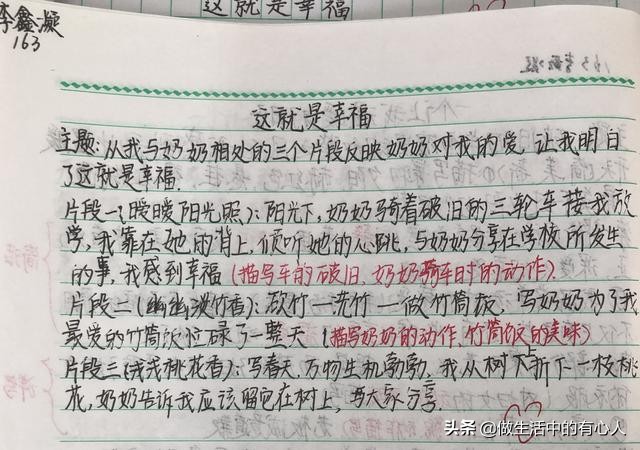 这就是幸福
李鑫凝
163
这就是幸福
主题:从我与奶奶相处的三个片段反映奶奶对我的爱,让我明白
了这就是幸福.
片段一(暖暖阳光照):阳光下,奶奶骑着破旧的三轮车接我放
学,我靠在她的背上,倾听她的心跳,与奶奶分享在学校所发生
的事,我感到幸福(描写车的破旧,奶奶骑车时的动作)
片段二(幽幽淡竹香):砍竹一洗竹一做竹筒饭,写奶奶为了我
最爱的竹筒饭忙碌了一整天(描写奶奶的动作,竹筒饭的美味)
片段三(浅浅桃花香):写春天,万物生机勃勃,我从树上折下一枝桃
花,奶奶告诉我应该留它在树上,与大家分享.
头条@做生活中的有心人